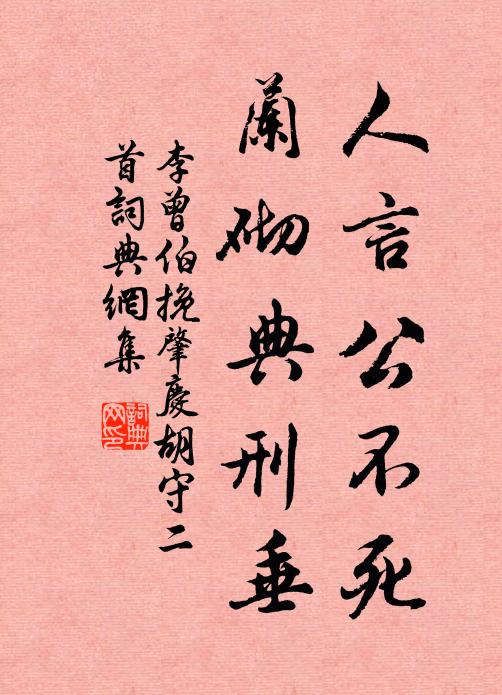 人言公不死
蘭砌典刑垂
李曾伯挽肇慶胡守二
首詞典網集
詞典網印